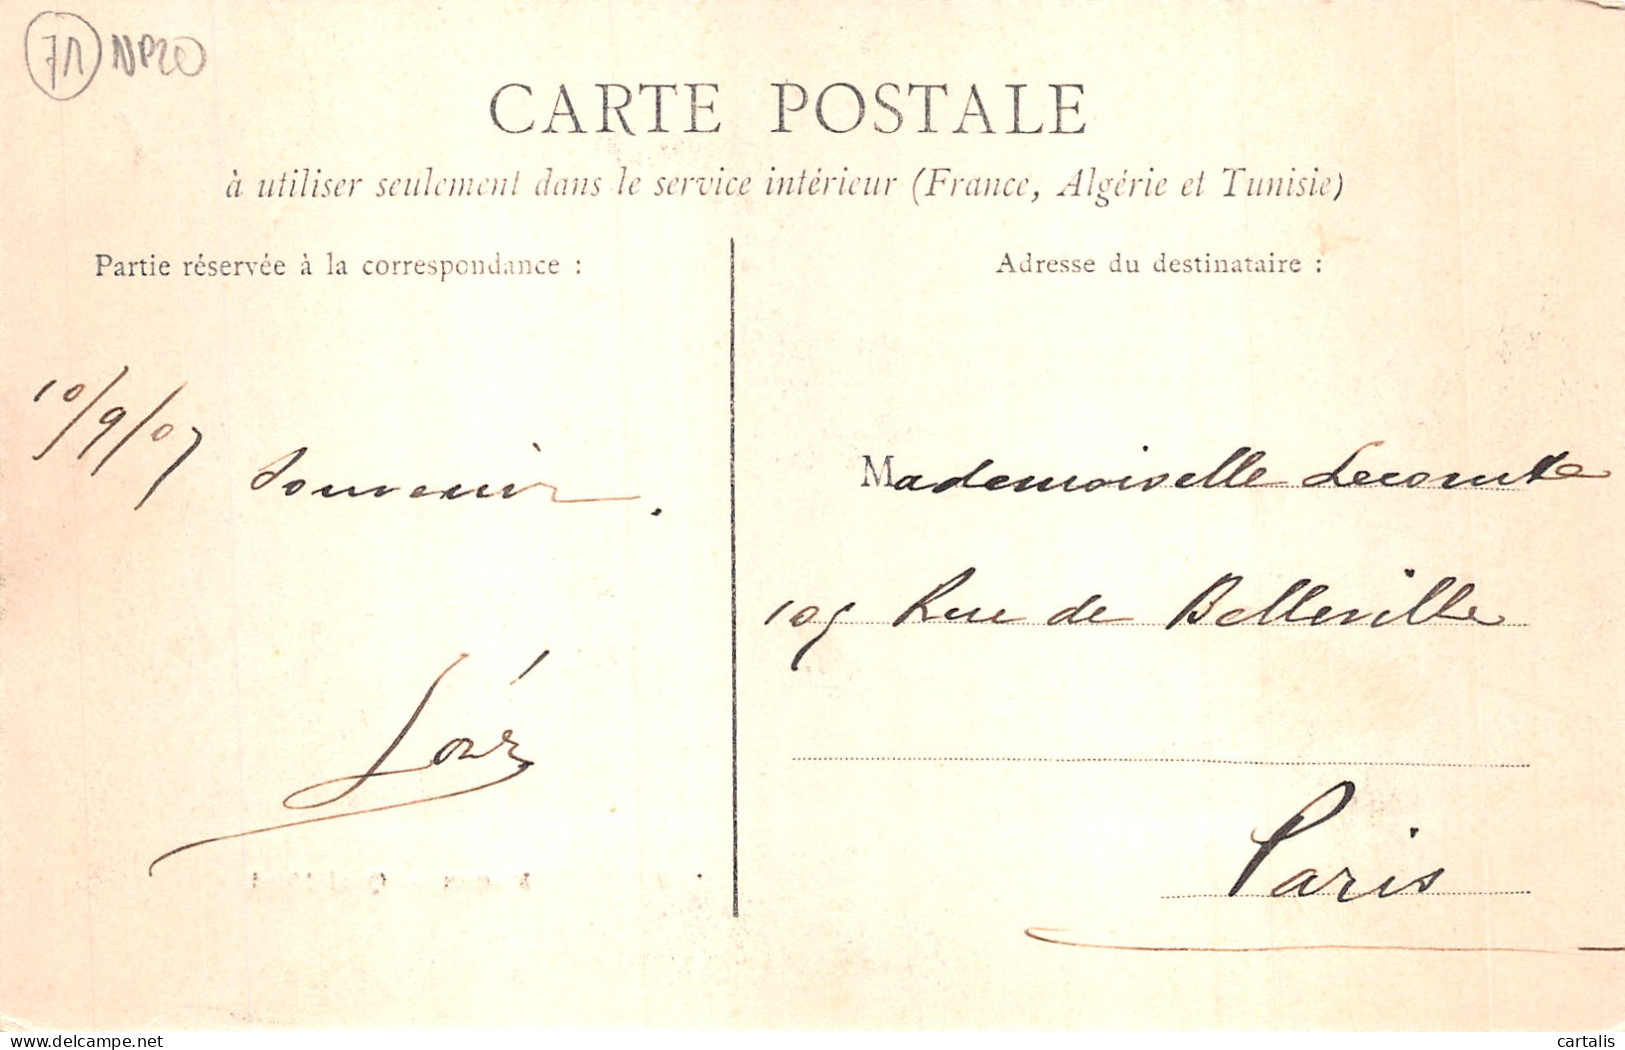 71 NP20
CARTE POSTALE
à utiliser seulement dans le service intérieur (France, Algérie et Tunisie)
Partie réservée à la correspondance :
10/9/07
Souvenir.
Adresse du destinataire :
Mademoiselle Lecomte
105 Rue de Belleville
Paris
cartalis